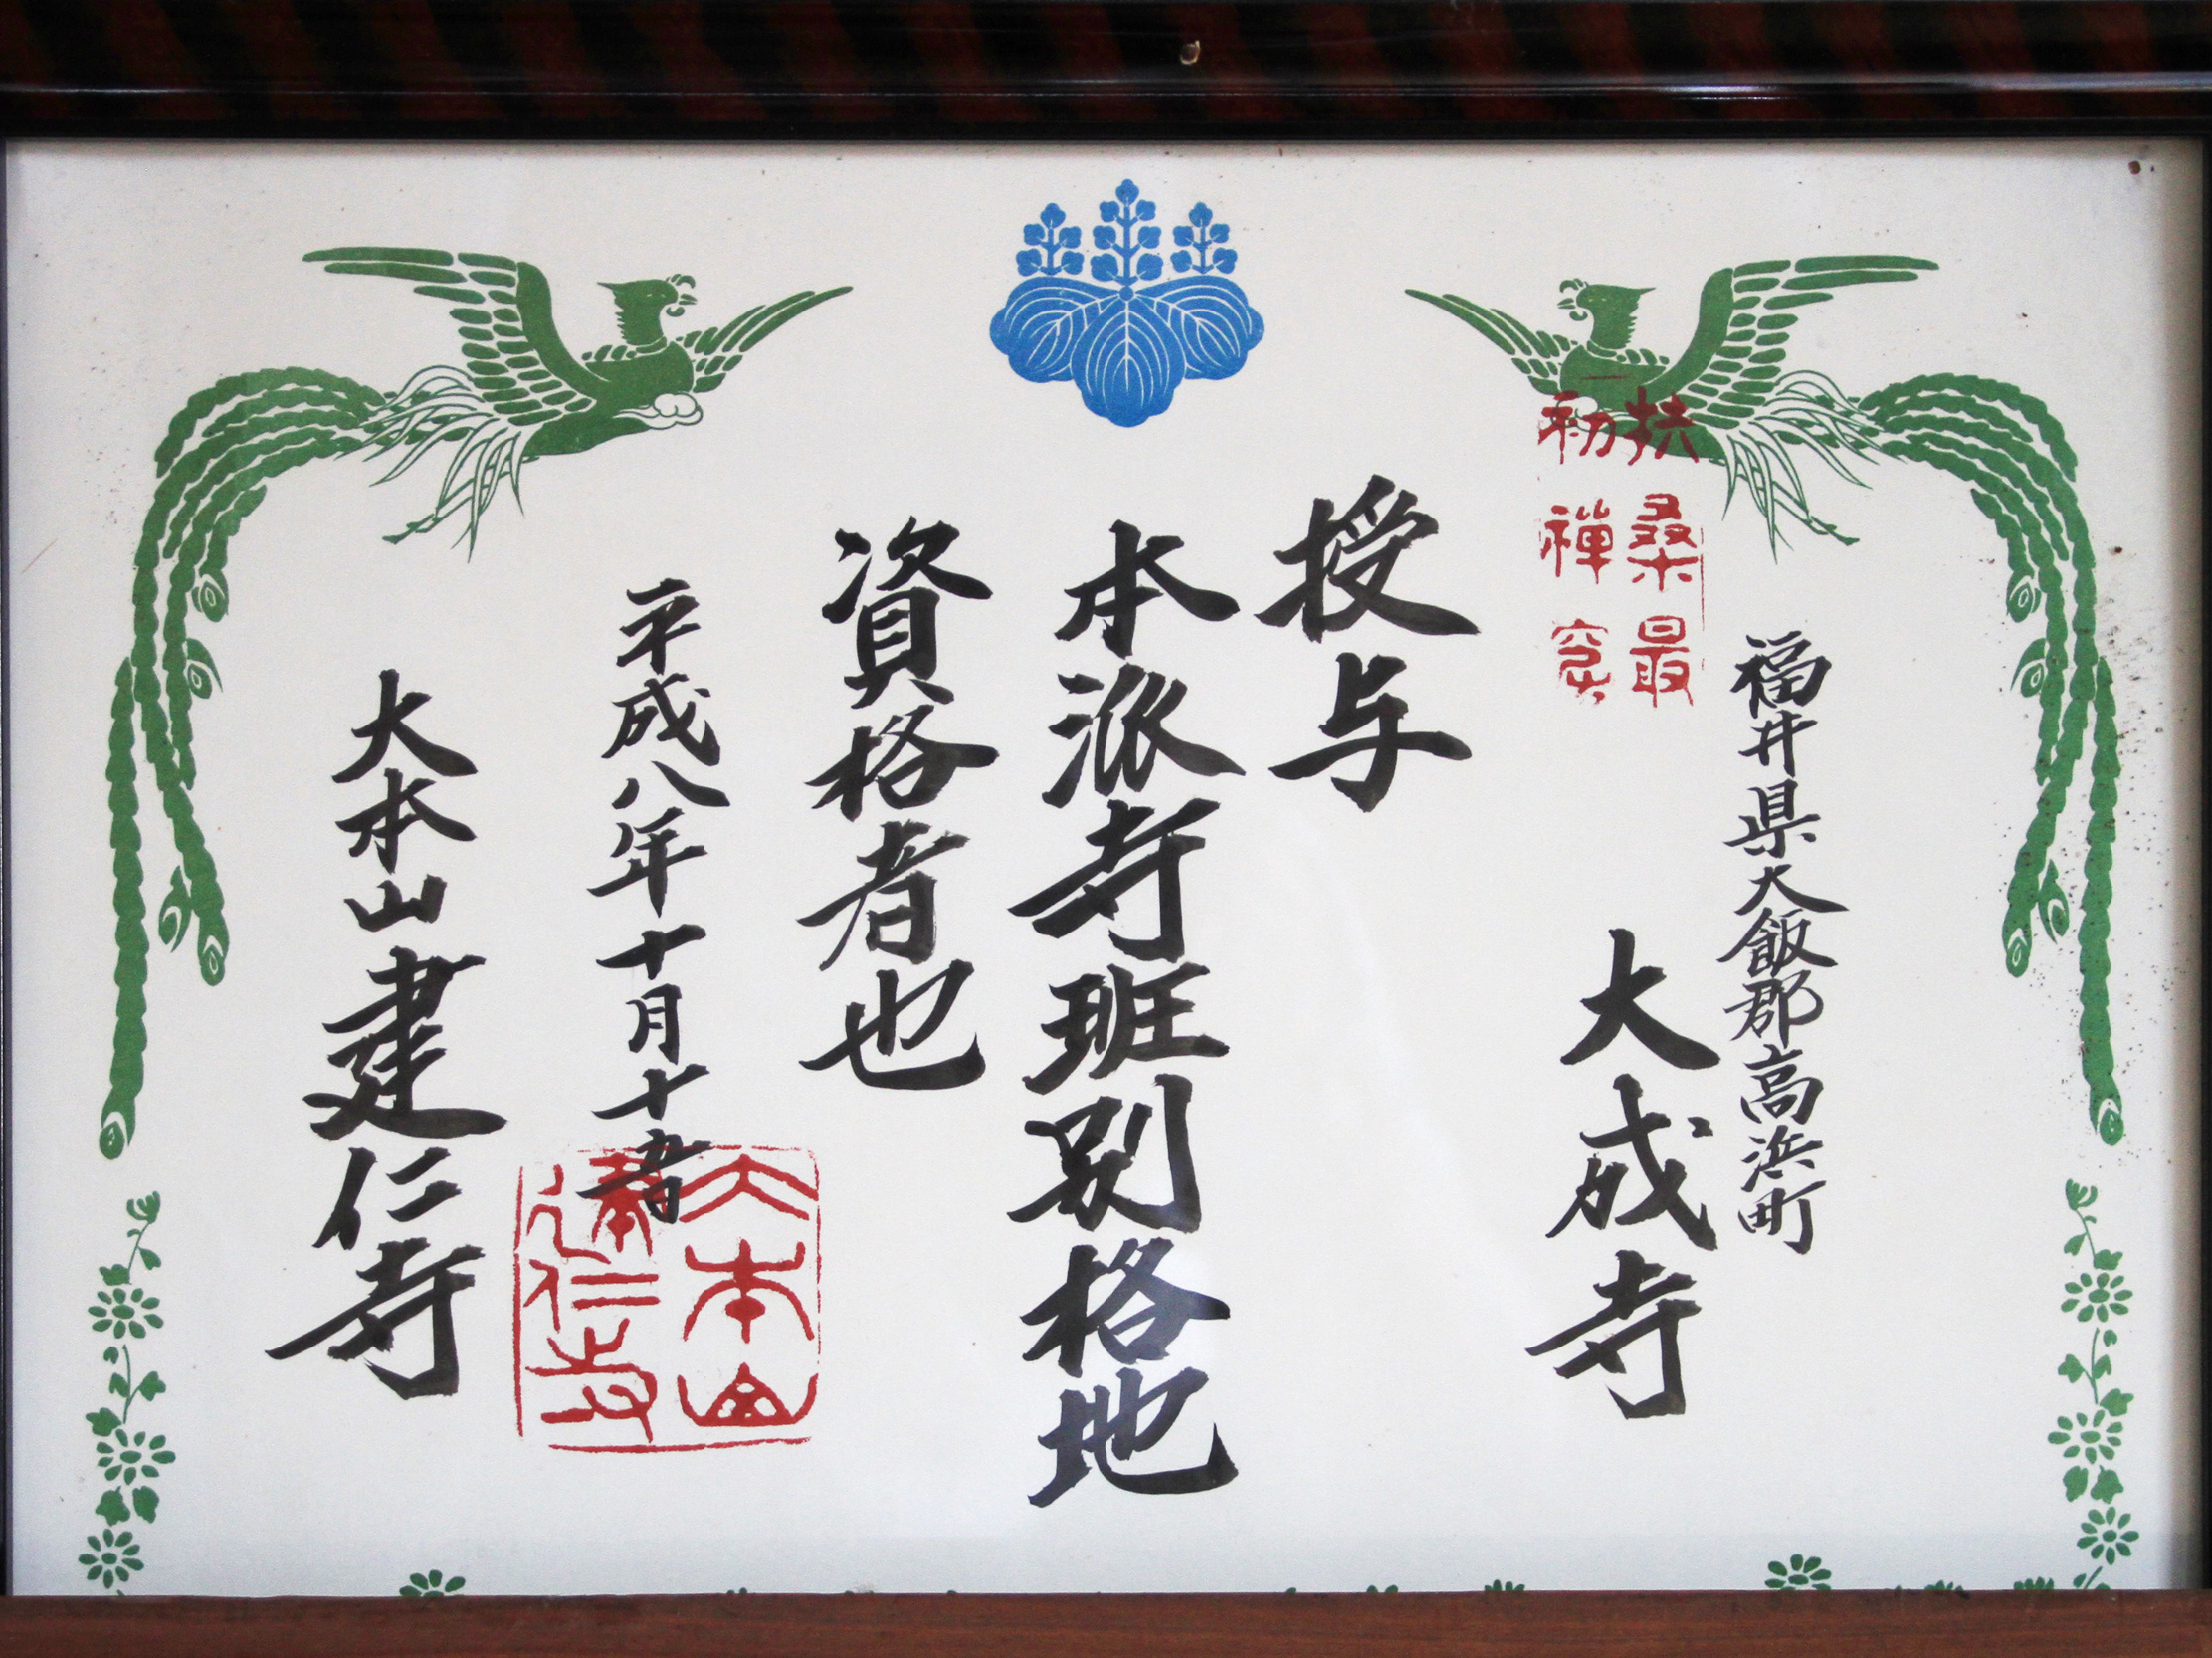 福井県大飯郡高浜町
大成寺
扶桑最
初禅窟
授与
本派寺班別格地
資格者也
平成八年十月十五日
大本山建仁寺
大本山
建仁寺